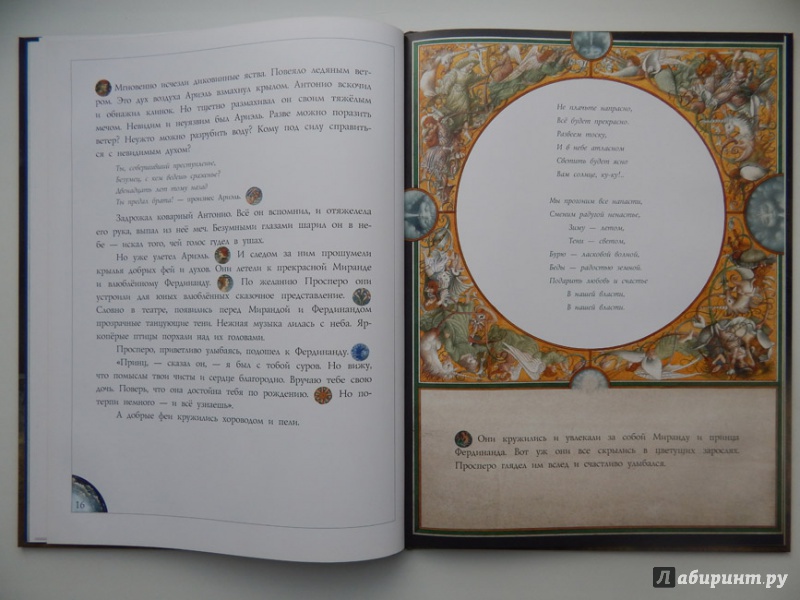 Мгновенно исчезли диковинные яства. Повеяло ледяным вет-
ром. Это дух воздуха Ариэль взмахнул крылом. Антонио вскочил
и обнажил клинок. Но тщетно размахивал он своим тяжёлым
мечом. Невидим и неуязвим был Ариэль. Разве можно поразить
ветер? Неужто можно разрубить воду? Кому под силу справить-
ся с невидимым духом?
Ты, совершивший преступление,
Безумец, с кем ведёшь сражение?
Двенадцать лет тому назад
Ты предал брата! — пропел Ариэль.
Задрожал коварный Антонио. Всё он вспомнил, и отяжелела
его рука, выпал из неё меч. Безумными глазами шарил он в не-
бе — искал того, чей голос гудел в ушах.
Но уже улетел Ариэль. И следом за ним прошумели
крылья добрых фей и духов. Они летели к прекрасной Миранде
и влюблённому Фердинанду. По желанию Просперо они
устроили для юных влюблённых сказочное представление.
Словно в театре, появились перед Мирандой и Фердинандом
прозрачные танцующие тени. Нежная музыка лилась с неба. Яр-
копёрые птицы порхали над их головами.
Просперо, приветливо улыбаясь, подошёл к Фердинанду.
«Принц, — сказал он, — я был с тобой суров. Но вижу,
что помыслы твои чисты и сердце благородно. Вручаю тебе свою
дочь. Поверь, что она достойна тебя по рождению. Но по-
терпи немного — и всё узнаешь».
А добрые феи кружились хороводом и пели.
16
Не плачьте напрасно,
Всё будет прекрасно.
Развеем тоску,
И в небе атласном
Светить будет ясно
Вам солнце, ку-ку!..
Мы прогоним все напасти,
Сменим радугой ненастье,
Зиму — летом,
Тени — светом,
Бурю — ласковой волной,
Беды — радостью земной.
Подарить любовь и счастье
В нашей власти,
В нашей власти.
Они кружились и увлекали за собой Миранду и принца
Фердинанда. Вот уж они все скрылись в цветущих зарослях.
Просперо глядел им вслед и счастливо улыбался.
Лабиринт.ру